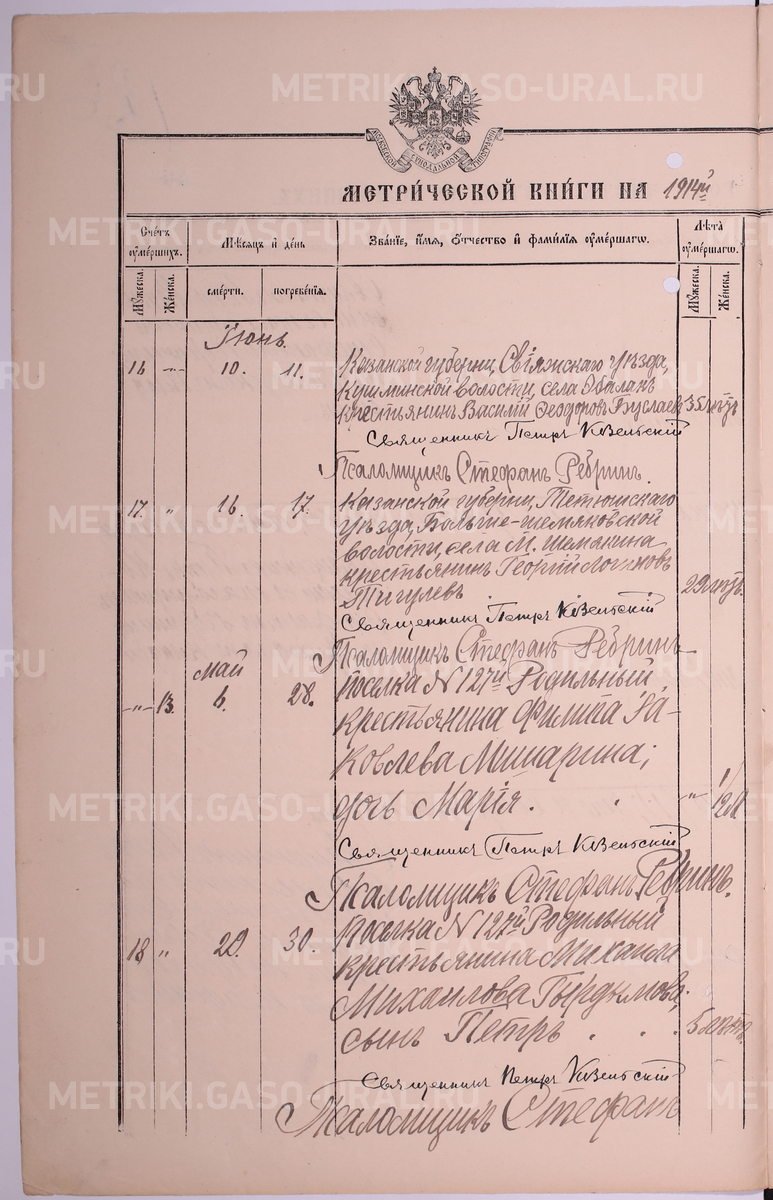 МЕТРИЧЕСКОЙ КНИГИ НА 1914й
Счетъ умершихъ.
Мѣсяцъ и день
Званіе, имя, отчество и фамилія умершаго.
Лѣта умершаго.
Мужеска.
Женска.
смерти.
погребенія.
Мужеска.
Женска.
Іюнь.
16 -"- 10. 11. Казанской губерніи, Свіяжскаго уѣзда,
Кушминской волости, села
крестьянинъ Василій Ѳеодоровъ Буслаевъ 35 лѣтъ
Священникъ Петръ
Псаломщикъ Стефанъ Ребринъ.
17 " 16. 17. Казанской губерніи, Тетюшскаго
уѣзда, Больше-шемяковской
волости, села М. Шемякина
крестьянинъ Георгій Логиновъ
Тигулевъ 29 лѣтъ.
Священникъ Петръ
Псаломщикъ Стефанъ Ребринъ
май
-"- 13. 6. 28. поселка N 127й Родильный
крестьянина Филипа Я-
ковлева Мишарина;
дочь Марія. " 1/12 м
Священникъ Петръ
Псаломщикъ Стефанъ Ребринъ.
18 " 29. 30. Поселка N 127й Родильный
крестьянина Михаила
Михаилова
сынъ Петръ . . . 5 лѣтъ.
Священникъ Петръ
Псаломщикъ Стефанъ
METRIKI.GASO-URAL.RU